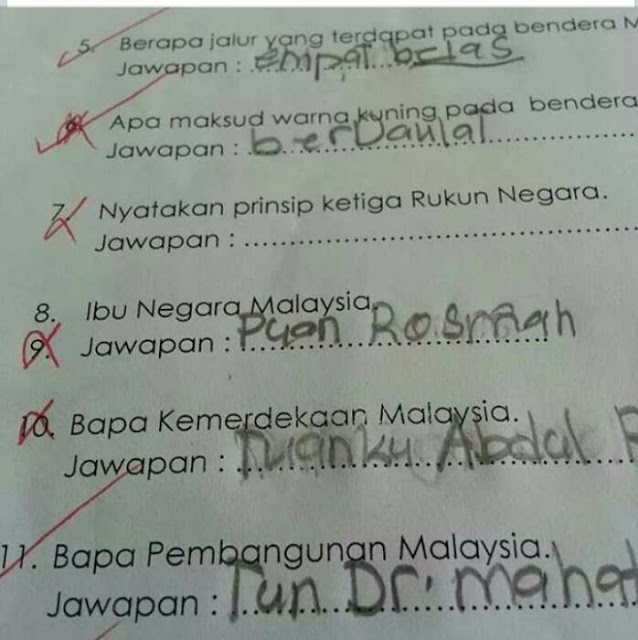 5. Berapa jalur yang terdapat pada bendera M
Jawapan : empat belas
Apa maksud warna kuning pada bendera
Jawapan : berDaulat
7. Nyatakan prinsip ketiga Rukun Negara.
Jawapan : ........................................
8. Ibu Negara Malaysia.
9. Jawapan : Puan Rosmah
10. Bapa Kemerdekaan Malaysia.
Jawapan : Tuanku Abdal R
11. Bapa Pembangunan Malaysia.
Jawapan : Tun Dr. mahat